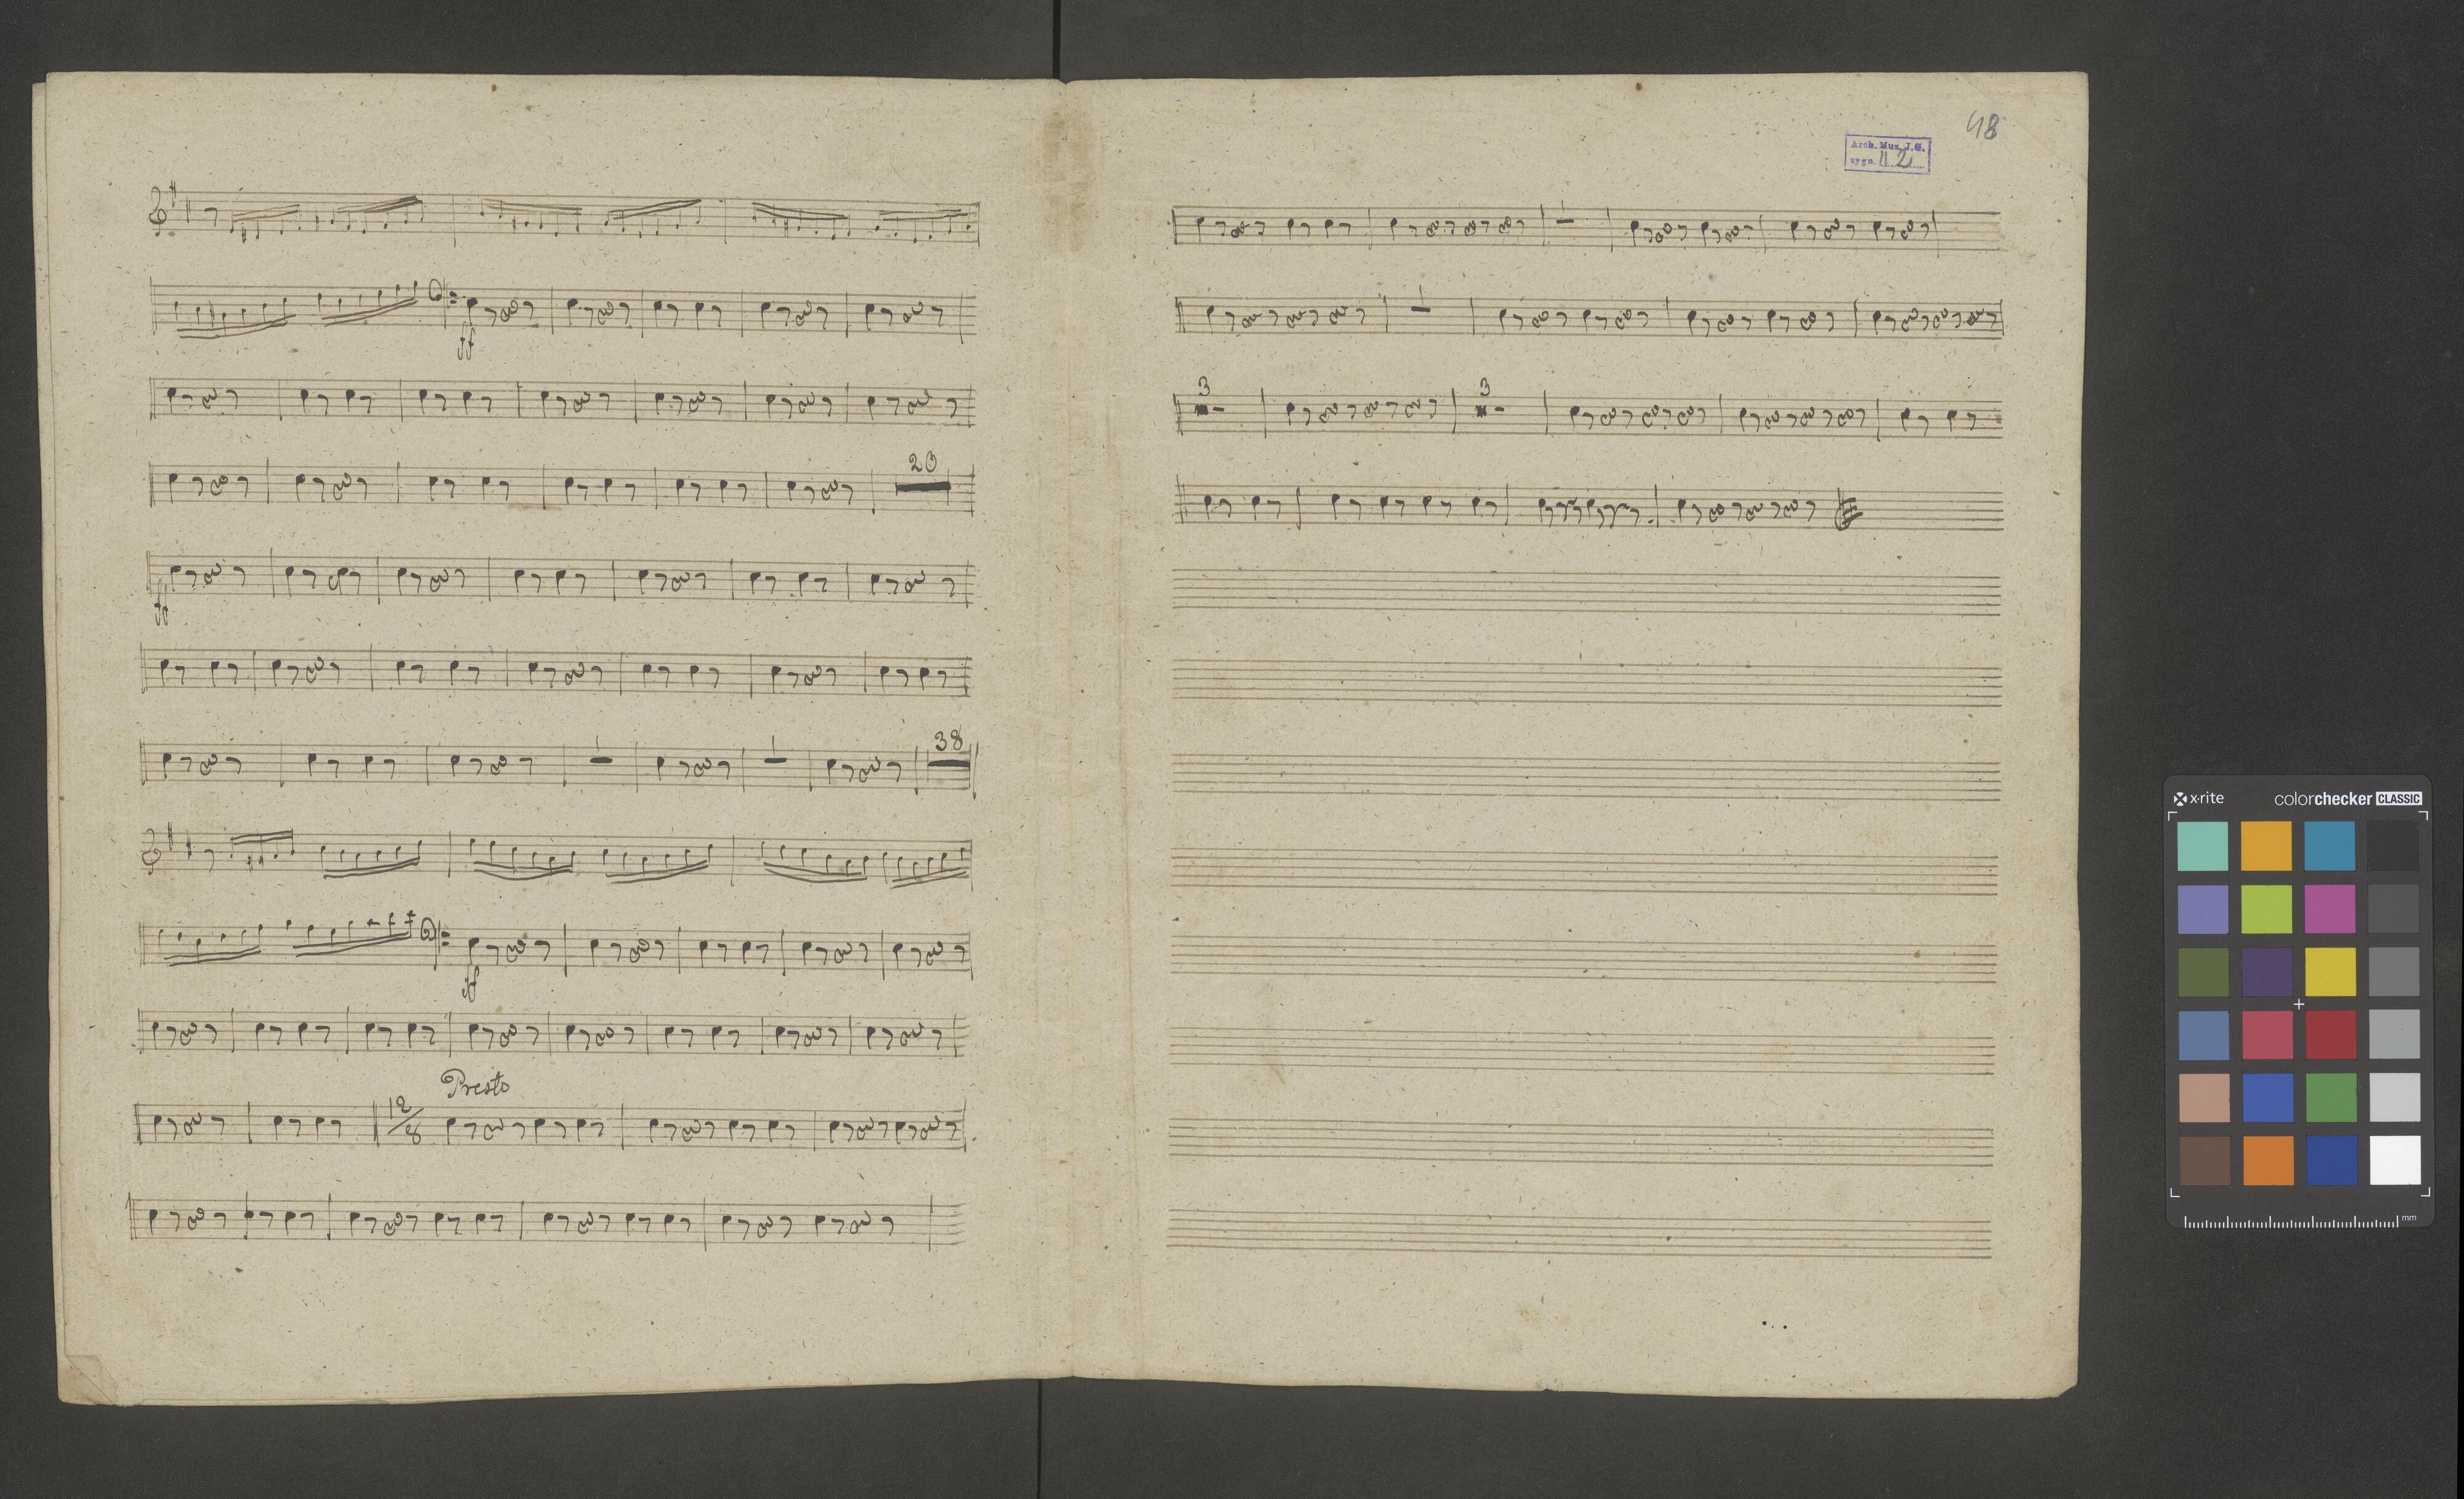 ff
20
ff
38
ff
Presto
12/8
48
Arch. Muz. J. G.
sygn. II 2
3 3
x-rite colorchecker CLASSIC
mm